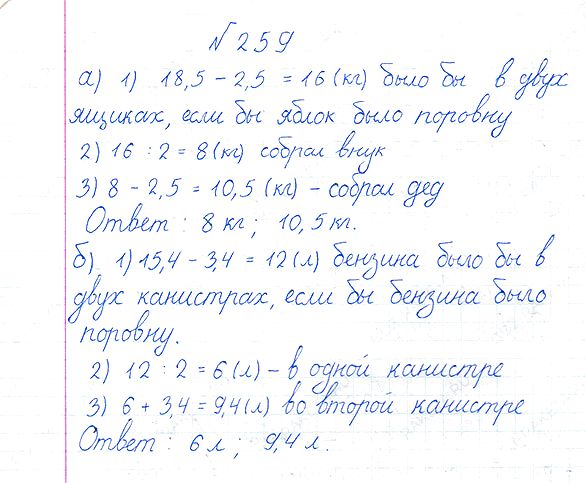 № 259
а) 1) 18,5 - 2,5 = 16 (кг) было бы в двух
ящиках, если бы яблок было поровну
2) 16 : 2 = 8 (кг) собрал внук
3) 8 - 2,5 = 10,5 (кг) - собрал дед
Ответ : 8 кг ; 10,5 кг.
б) 1) 15,4 - 3,4 = 12 (л) бензина было бы в
двух канистрах, если бы бензина было
поровну.
2) 12 : 2 = 6 (л) - в одной канистре
3) 6 + 3,4 = 9,4 (л) во второй канистре
Ответ : 6 л ; 9,4 л.